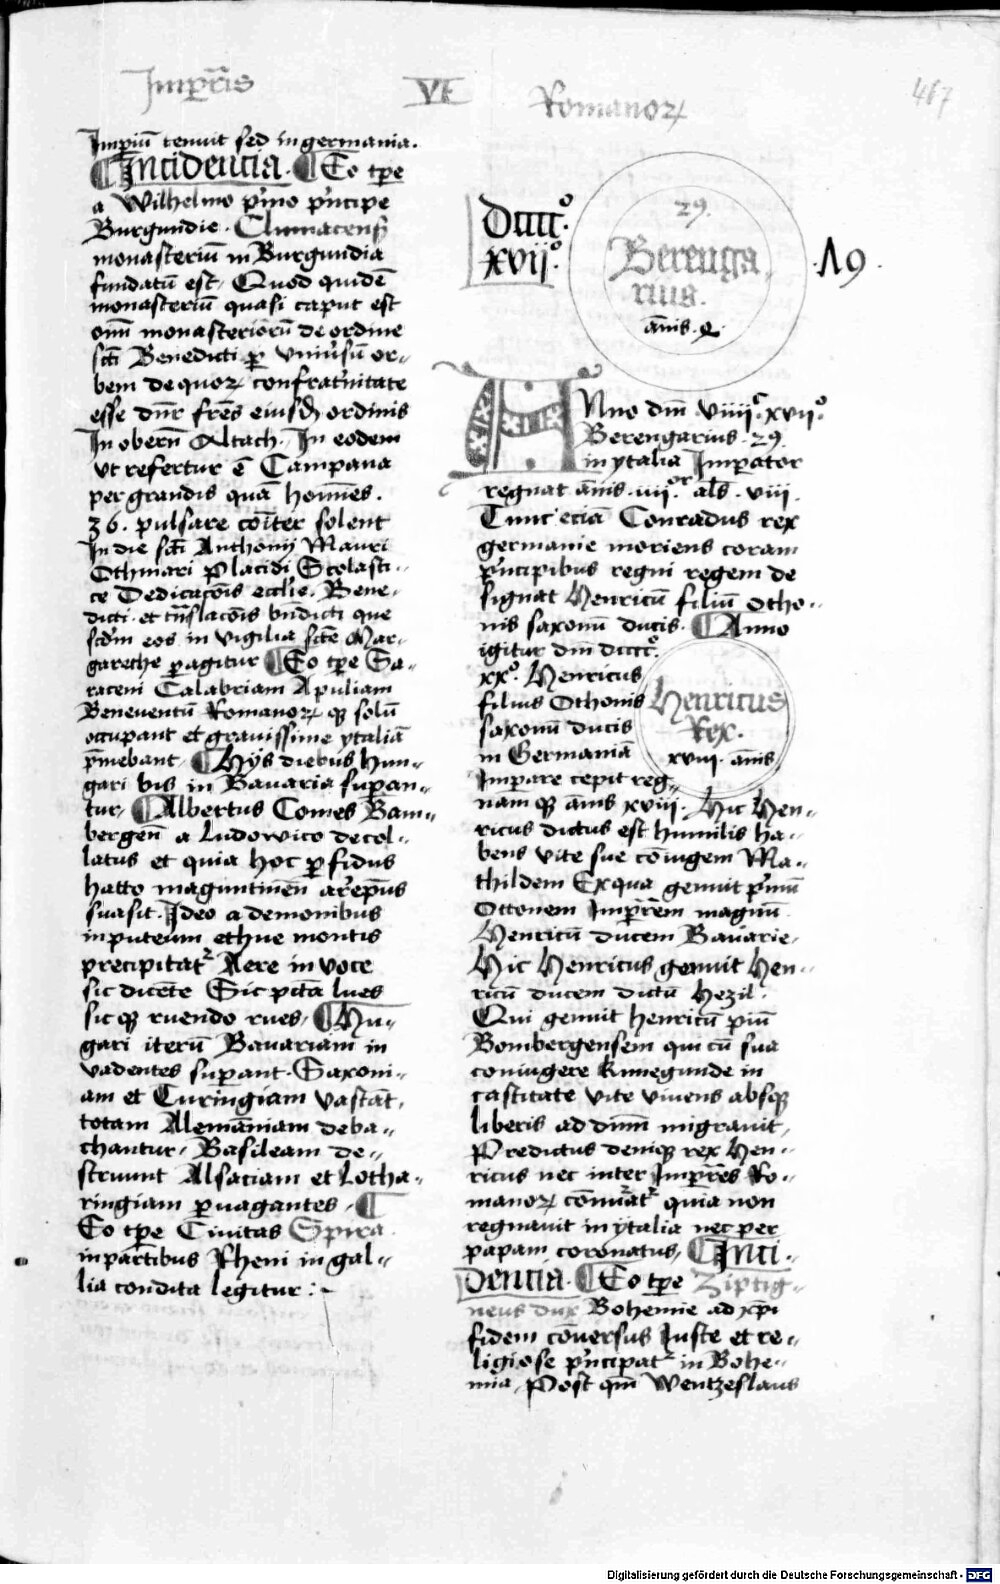 Imperis
VI
Romanorꝝ
467
Imperiū tenuit sed in germania.
Incidencia. Eo tpe
a Wilhelmo p'mo p'ncipe
Burgundie. Cluniacens
monasteriū in Burgundia
fundatū est, Quod quidē
monasteriū quasi caput est
oīm monasteriorū de ordine
scti Benedicti p vniu'sū or„
bem de quorꝝ confrat'nitate
esse dn̄r frēs eiusd ordinis
In obern Altach. In eodem
vt refertur ē Campana
per grandis quā homīes.
36. pulsare cōiter solent
In die scti Anthonij Mauri
Othmari Placidi Scolasti„
ce Dedicacōis ecclie. Bene„
dicti. et tn̄slacōis bn̄dicti que
scdm eos in vigilia scte Mar„
garethe pagitur Eo tpe Sa„
raceni Calabriam Apuliam
Beneuentū Romanorꝝ qꝫ solū
occupant et grauissime ytaliā
p̄mebant, Hys diebus Hun„
gari bis in Bauaria superan„
tur, Albertus Comes Bam„
bergen̄ a Ludowico decol„
latus et quia hoc pfidus
hatto maguntinen̄ arepūs
suasit. Ideo a demonibus
in puteum ethne montis
precipitat' Aere in voce
sic dicēte Sic pctā lues
sic qꝫ ruendo rues, Hu„
gari iterū Bauariam in
vadentes superant. Saxoni„
am et Turingiam vastāt,
totam Alemāniam deba„
chantur, Basileam de„
struunt Alsaciam et Lotha„
ringiam puagantes,
Eo tpe Ciuitas Spira
in partibus Rheni in gal„
lia condita legitur :~
Dcccc°.
xvij°.
29.
Berenga„
rius.
ānis. 4.
.Λ9.
Anno dm̄ viiij.c xvij.°
Berengarius. 29.
in ytalia Imperator
regnat ānis. iiij.or als. viij.
Tunc eciā Conradus rex
germanie moriens coram
p'ncipibus regni regem de
signat Henricū filiū Otho„
nis saxonū ducis. Anno
igitur dm̄ dcccc°.
xx°. Henricus
filius Othonis
saxonū ducis
in Germaniā
Imperare cepit reg„
nam qꝫ ānis xviij. Hic Hen„
Henricus
Rex.
xviij. ānis
ricus dictus est humilis ha„
bens vite sue cōiugem Ma„
thildem Ex qua genuit p'mū
Ottonem Impr̄em magnū
Henricū ducem Bauarie,
Hic Henricus genuit Hen„
ricū ducem dictū Hezil.
Qui genuit henricū piū
Bombergensem qui cū sua
coniugere kunegunde in
castitate vite viuens absqꝫ
liberis ad dnm̄ migrauit,
Predictus deniqꝫ rex Hen„
ricus nec inter Impr̄es Ro„
manorꝝ cōnu'at' quia non
regnauit in ytalia nec per
papam coronatus, Inci„
dencia. Eo tpe Ziptig„
neus dux Bohemie ad xpi
fidem cōuersus Juste et re„
ligiose p'ncipat' in Bohe„
mia, Post qm̄ Wentzeslaus
Digitalisierung gefördert durch die Deutsche Forschungsgemeinschaft - DFG